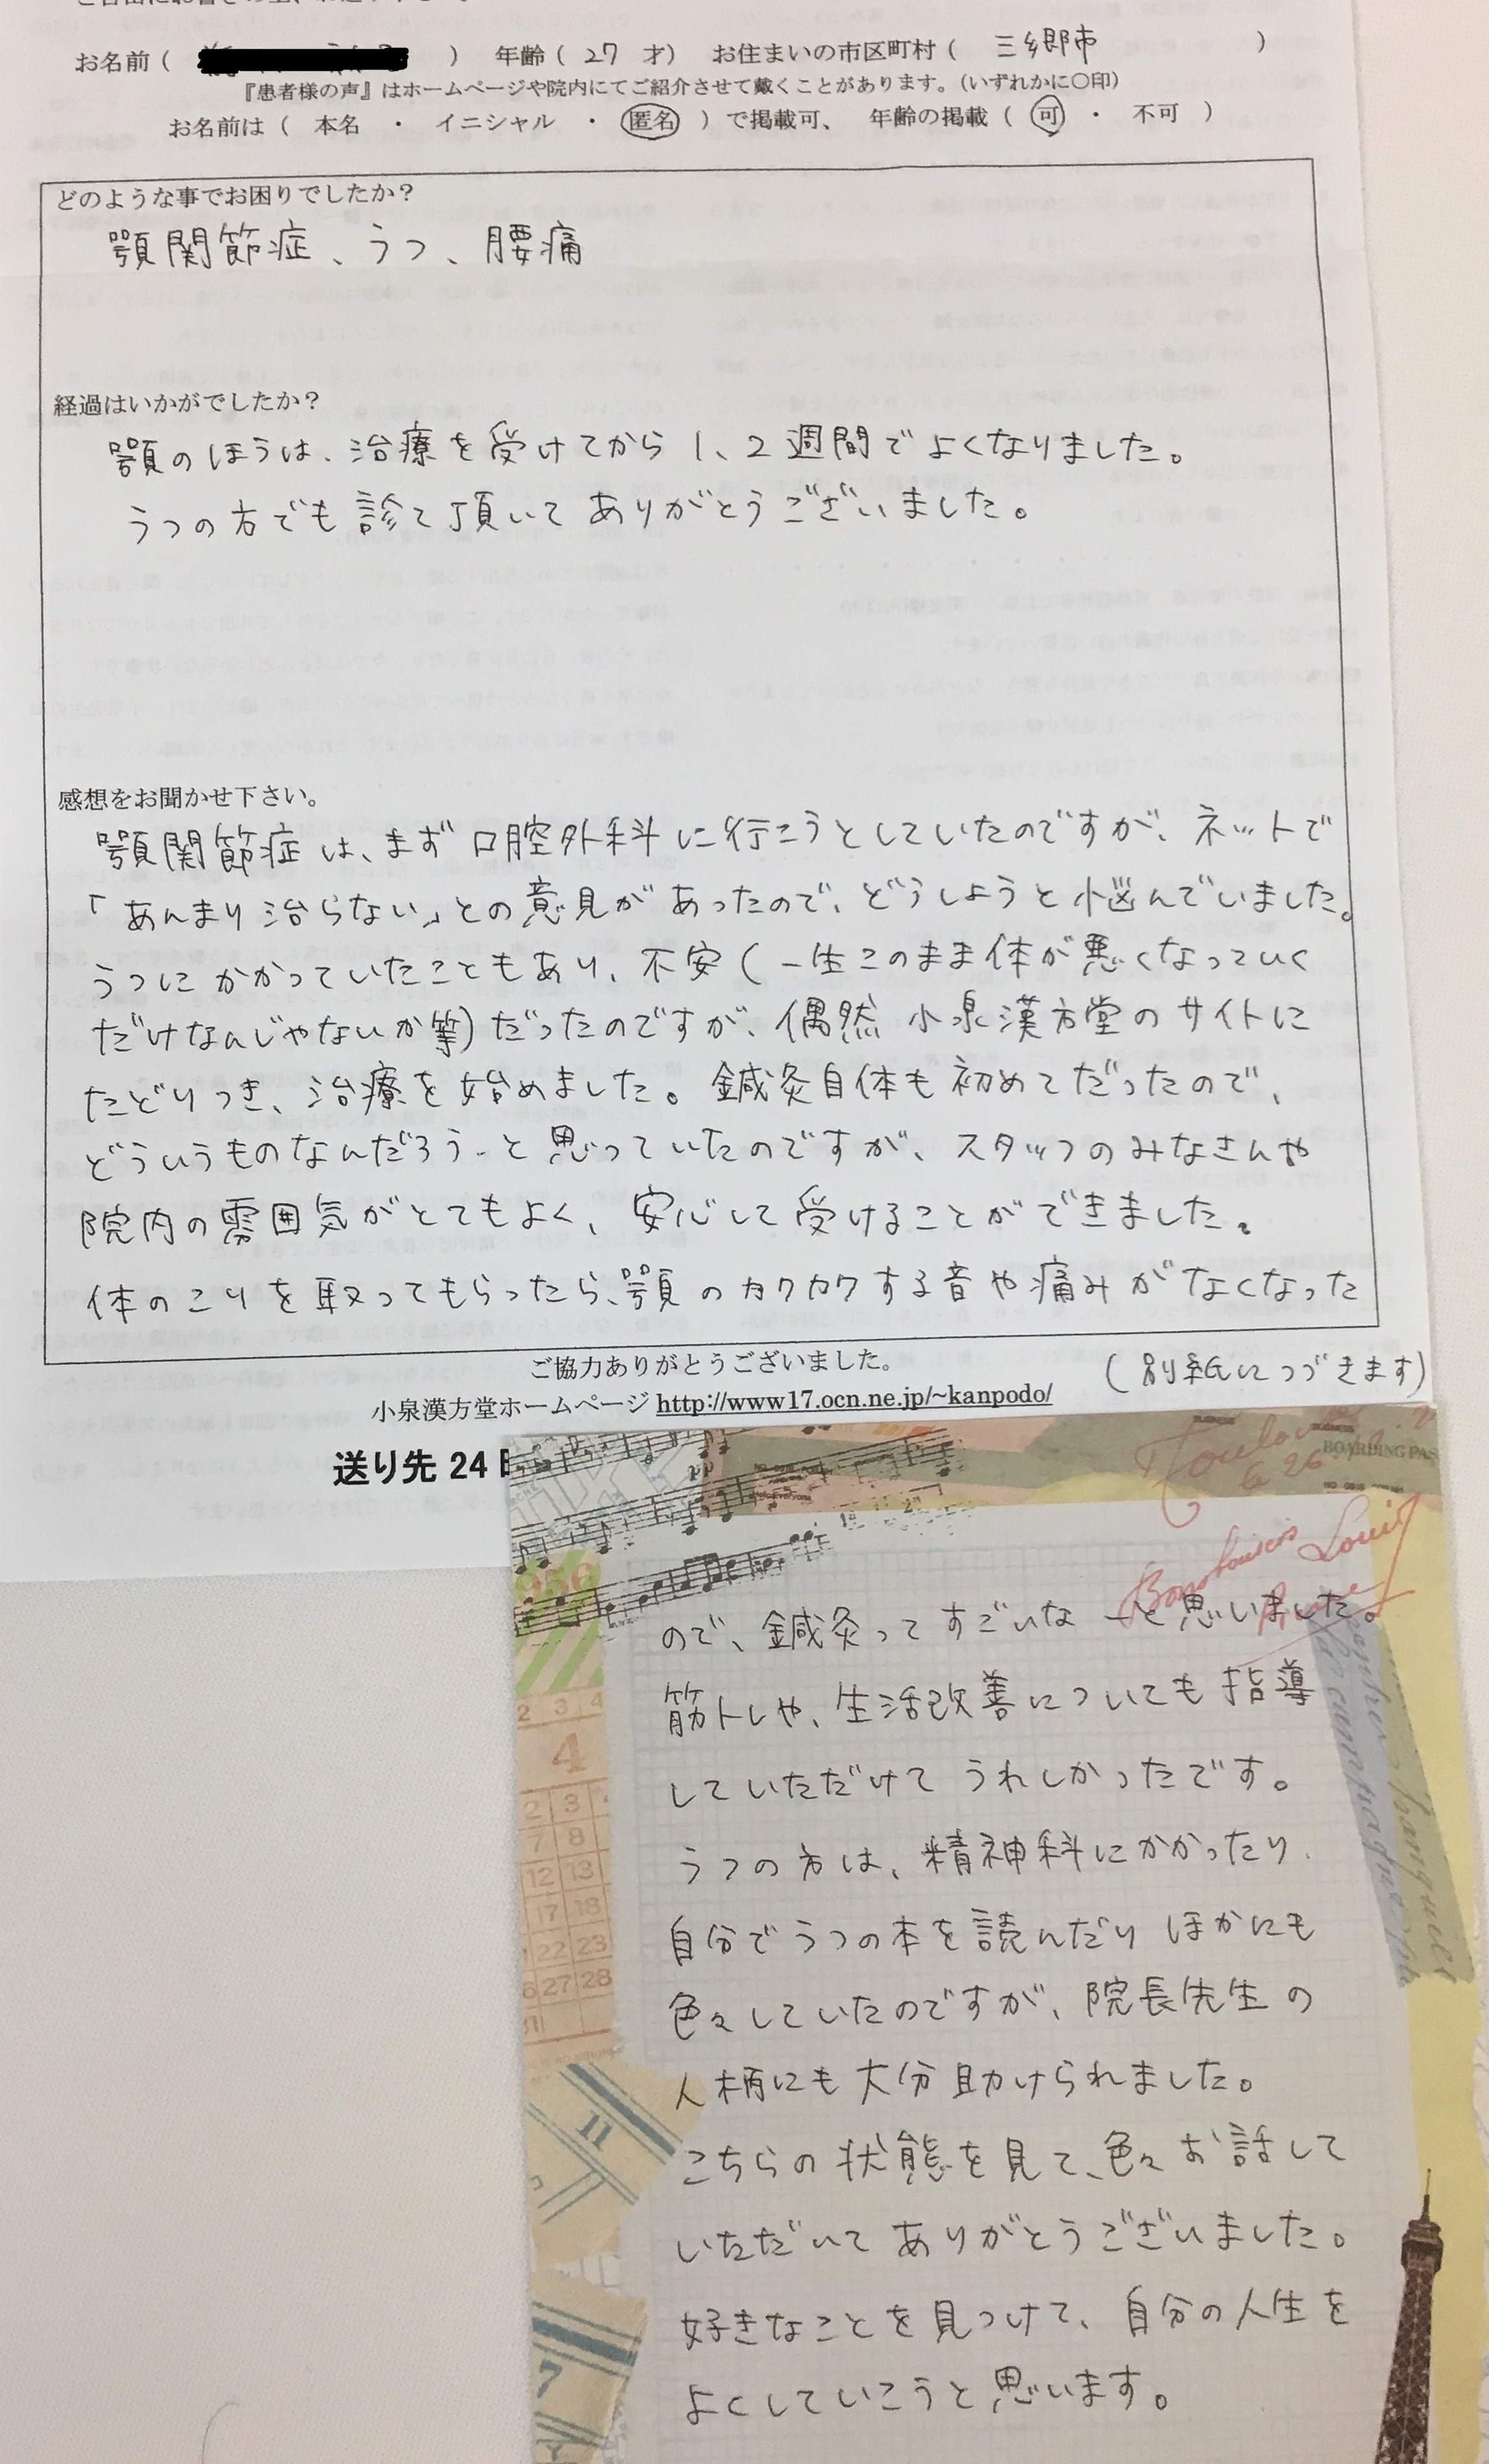 お名前（　　　）　年齢（ 27 才）　お住まいの市区町村（　三郷市　　　）
『患者様の声』はホームページや院内にてご紹介させて戴くことがあります。（いずれかに〇印）
お名前は（　本名　・　イニシャル　・　匿名　）で掲載可、　年齢の掲載（　可　・　不可　）
どのような事でお困りでしたか？
顎関節症、うつ、腰痛
経過はいかがでしたか？
顎のほうは、治療を受けてから1、2週間でよくなりました。
うつの方でも診て頂いてありがとうございました。
感想をお聞かせ下さい。
顎関節症は、まず口腔外科に行こうとしていたのですが、ネットで
「あんまり治らない」との意見があったので、どうしようと悩んでいました。
うつにかかっていたこともあり、不安（一生このまま体が悪くなっていく
だけなんじゃないか等）だったのですが、偶然小泉漢方堂のサイトに
たどりつき、治療を始めました。鍼灸自体も初めてだったので、
どういうものなんだろう-と思っていたのですが、スタッフのみなさんや
院内の雰囲気がとてもよく、安心して受けることができました。
体のこりを取ってもらったら、顎のカクカクする音や痛みがなくなった
ご協力ありがとうございました。
（別紙につづきます）
小泉漢方堂ホームページ http://www17.ocn.ne.jp/~kanpodo/
送り先 24
BOARDING PAS
ので、鍼灸ってすごいなーと思いました。
筋トレや、生活改善についても指導
していただけてうれしかったです。
うつの方は、精神科にかかったり、
自分でうつの本を読んだりほかにも
色々していたのですが、院長先生の
人柄にも大分助けられました。
こちらの状態を見て、色々お話して
いただいてありがとうございました。
好きなことを見つけて、自分の人生を
よくしていこうと思います。
2 3 4
4
2 3
7 8
12 13
17 18
22 23
27 28
11
7